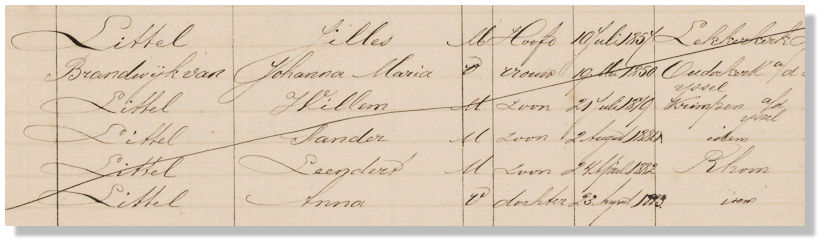 Littel Gilles M Hoofd 10 Juli 1857 Lekkerkerk
Brandwijk van Johanna Maria V vrouw 10 Mei 1850 Ouderkerk a/d
yssel
Littel Willem M zoon 21 Juli 1879 Krimpen a/d
yssel
Littel Sander M zoon 2 August 1880 idem
Littel Leendert M zoon 24 April 1882 Rhoon
Littel Anna V dochter 23 1883 idem